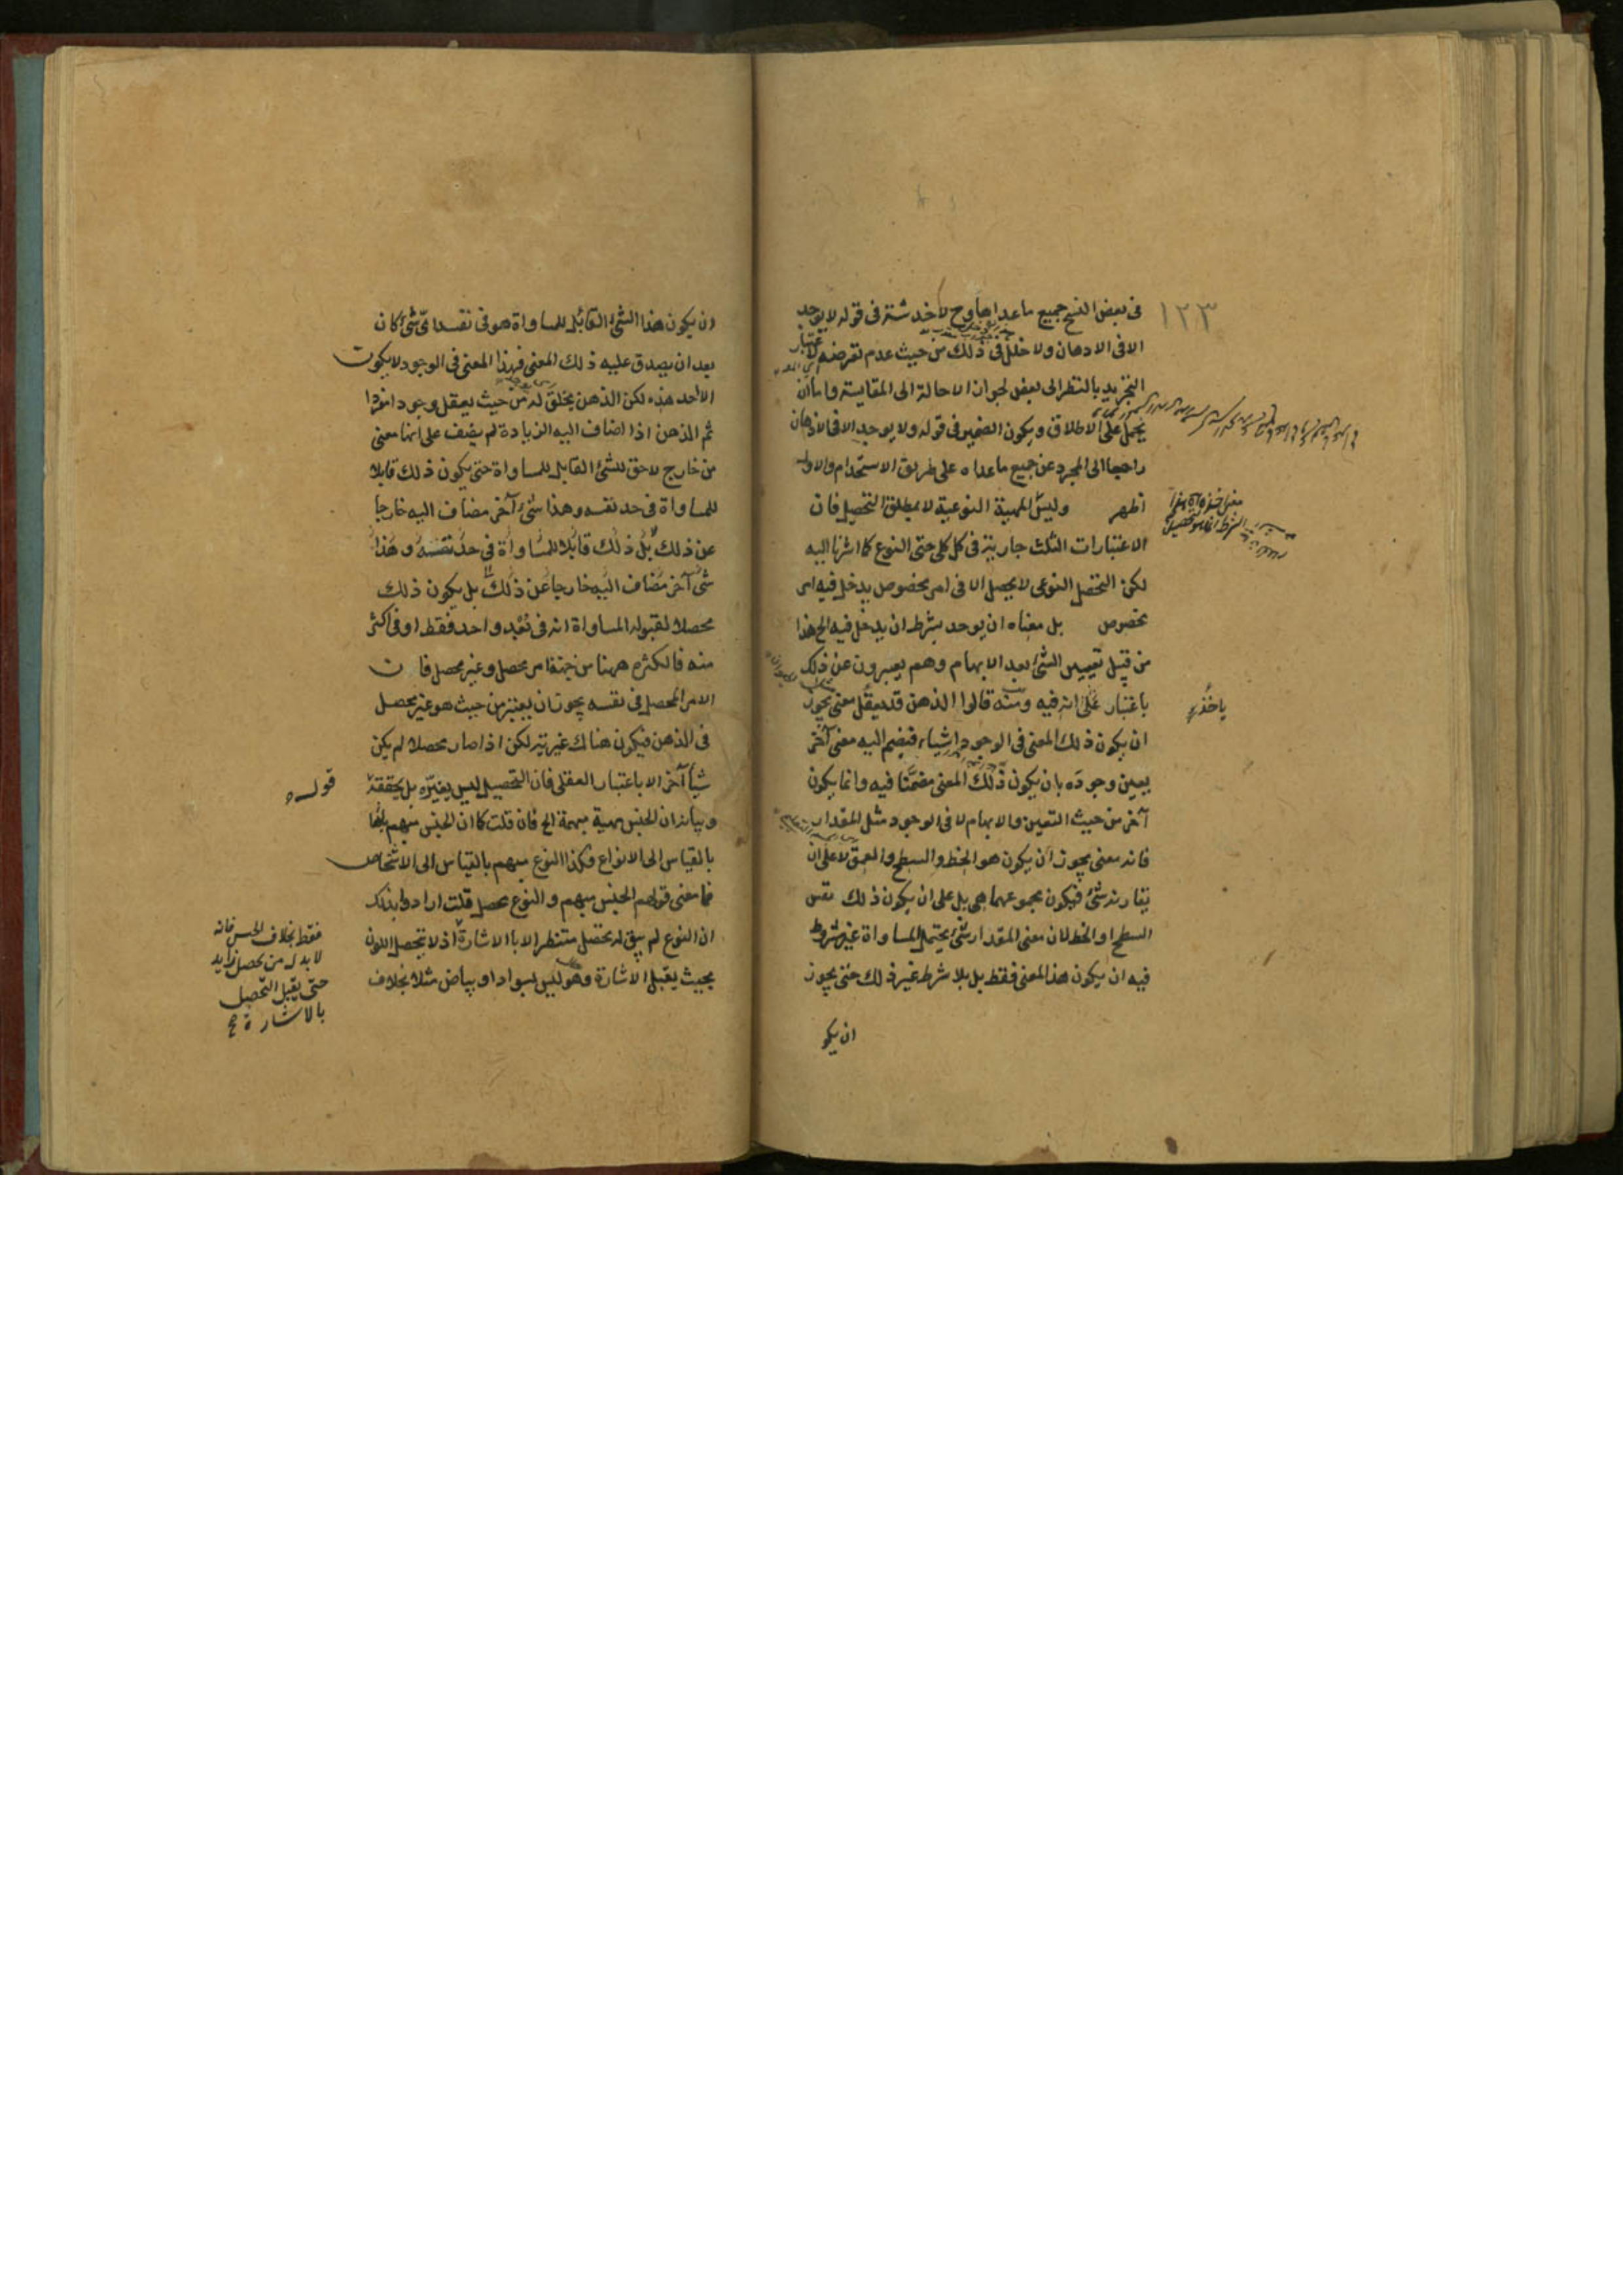 ١٢٣
فى بعض النسخ جميع ما عداها وح لا خدشة فى قوله لا يوجد
الا فى الاذهان ولا خلل فى ذلك من حيث عدم تعرضه لاعتبار
التجريد بالنظر الى بعض لجواز الاحالة الى المقايسة واما ان
يحمل على الاطلاق ويكون الضمير فى قوله ولا يوجد الا فى الاذهان
راجعا الى المجرد عن جميع ما عداه على طريق الاستخدام والاول
اظهر وليس للمهية النوعية لا بمطلق التحصيل فان
الاعتبارات الثلث جارية فى كل كلى حتى النوع كما اشرنا اليه
لكن التحصل النوعى لا يحصل الا فى امر مخصوص يدخل فيه امر
مخصوص بل معناه ان يوجد بشرط ان يدخل فيه الخ هذا
من قبيل تعيين الشئ بعد الابهام وهم يعبرون عن ذلك
باعتبار على انه فيه ومنه قالوا الذهن قد يعقل معنى يجوز
ان يكون ذلك المعنى فى الوجود اشياء فينضم اليه معنى آخر
يعين وجوده بان يكون ذلك المعنى مضمنا فيه وانما يكون
آخر من حيث التعين والابهام لا فى الوجود مثل المقدار
فانه معنى يجوز ان يكون هو الخط والسطح والعمق لا على ان
يقارنه شئ فيكون مجموعهما هى بل على ان يكون ذلك نفس
السطح او الخط لان معنى المقدار شئ يحتمل المساواة غير مشروط
فيه ان يكون هذا المعنى فقط بل بلا شرط غير ذلك حتى يجوز
ان يكو
ياخذه
ان يكون هذا الشئ القابل للمساواة هو فى نفسه اى شئ كان
بعد ان يصدق عليه ذلك المعنى فهذا المعنى فى الوجود لا يكون
الا احد هذه لكن الذهن يخلق له من حيث يعقل وجودا مفردا
ثم الذهن اذا اضاف اليه الزيادة لم يضف على انها معنى
من خارج لاحق للشئ القابل للمساواة حتى يكون ذلك قابلا
للمساواة فى حد نفسه وهذا شئ آخر مضاف اليه خارجا
عن ذلك بل ذلك قابلا للمساواة فى حد نفسه وهذا
شئ آخر مضاف اليه خارجا عن ذلك بل يكون ذلك
محصلا لقبوله المساواة انه فى بعد واحد فقط او فى اكثر
منه فالكثرة ههنا من جهة امر محصل وغير محصل فان
الامر المحصل فى نفسه يجوز ان يعتبر من حيث هو غير محصل
فى الذهن فيكون هناك غيرية لكن اذا صار محصلا لم يكن
شيأ آخر الا باعتبار العقلى فان التحصيل ليس يغيره بل يحققه
قوله
وبيانه ان الجنس مهية مبهمة الخ فان قلت كما ان الجنس مبهم
بالقياس الى الانواع فكذا النوع مبهم بالقياس الى الاشخاص
فما معنى قولهم الجنس مبهم والنوع محصل قلت ارادوا بذلك
ان النوع لم يبق له تحصل منتظر الا بالاشارة اذ لا يتحصل اللون
بحيث يقبل الاشارة وهو ليس بسواد او بياض مثلا بخلاف
فقط بخلاف الجنس فانه
لا بد له من تحصل زايد
حتى يقبل التحصيل
بالاشارة صح